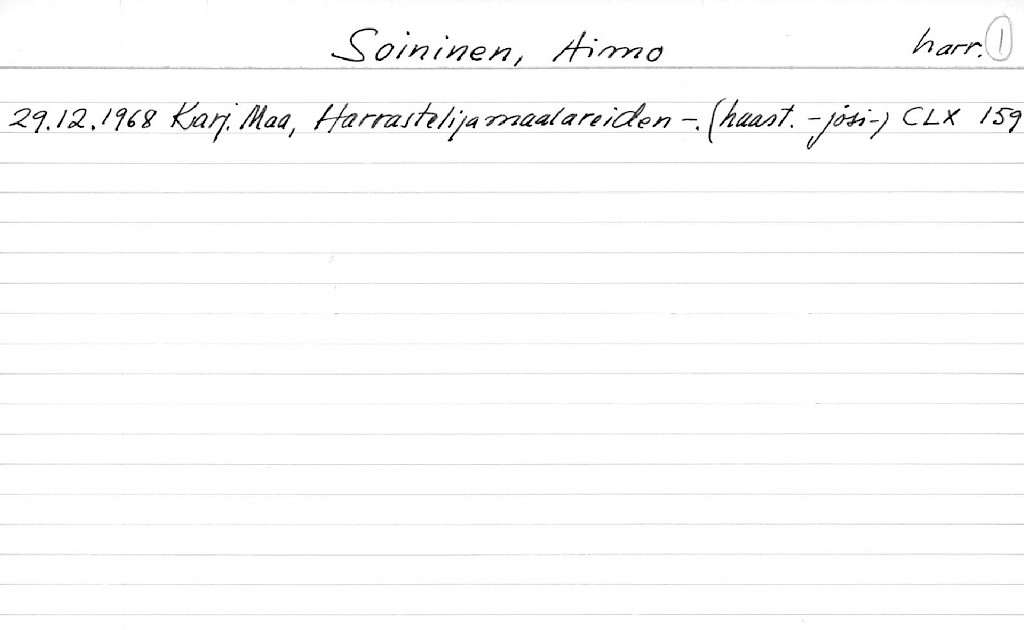 Soininen, Aimo harr. 1
29.12.1968 Karj. Maa, Harrastelijamaalareiden -. (haast. -jösi-) CLX 159